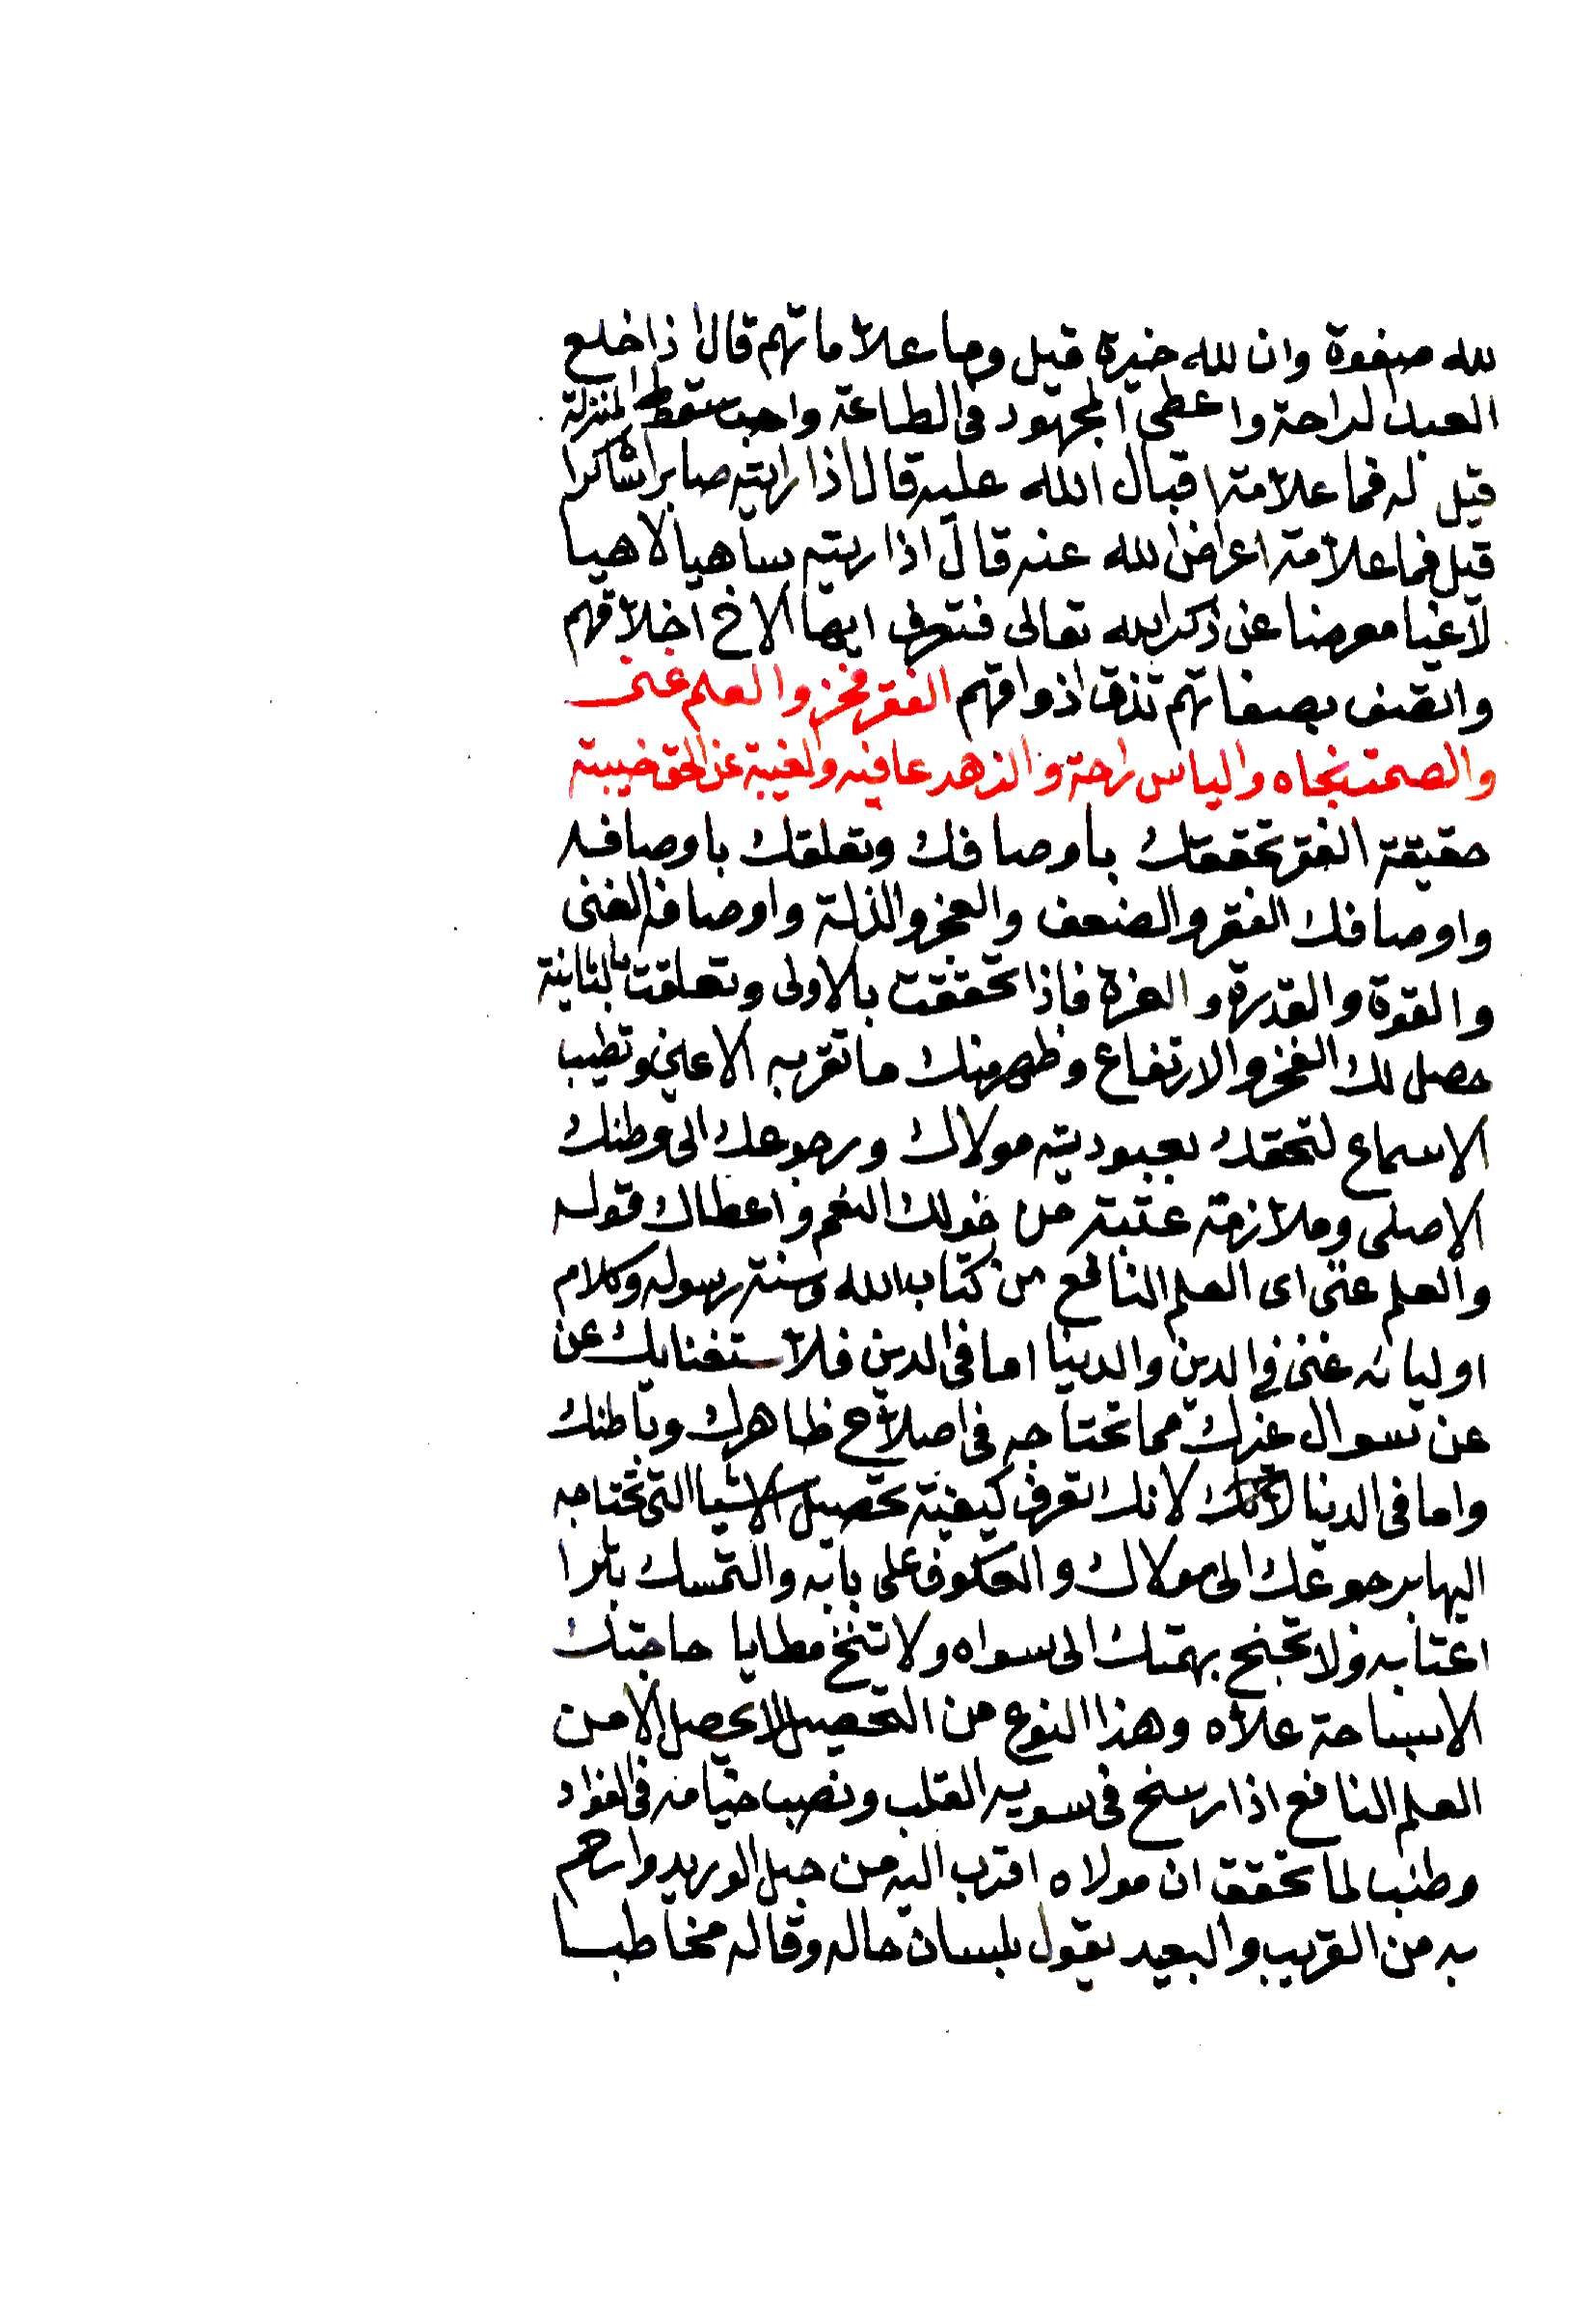 لله صفوة وان لله خيرة قيل وما علاماتهم قال اذا خلع
العبد الراحة واعطى المجهود فى الطاعة واحب سقوط المنزلة
قيل له فما علامة اقبال الله عليه قال اذا رايته صابرا شاكرا
قيل فما علامة اعراض الله عنه قال اذا ريته ساهيا لاهيا
لاغيا معرضا عن ذكر الله تعالى فتعرف ايها الاخ اخلاقهم
واتصف بصفاتهم تذق اذواقهم الفقر فخر والعلم غنى
والصمت نجاه والياس راحة والزهد عافيه والغيبة عن الحق خيبة
حقيقة الفقر تحققك باوصافك وتعلقك باوصافه
واوصافك الفقر والضعف والعجز والذلة واوصافه الغنى
والقوة والقدرة والعزة فاذا تحققت بالاولى وتعلقت بالثانية
حصل لك الفخر والارتفاع وظهر منك ما تقر به الاعين وتطيب
الاسماع لتحقك بعبوديته مولاك ورجوعك الى وطنك
الاصلى وملازمة عتبة من خولك النعم واعطاك قوله
والعلم غنى اى العلم النافع من كتاب الله وسنة رسوله وكلام
اوليائه غنى فى الدين والدنيا اما فى الدين فلاستغنايك عن
عن سوال غيرك مما تحتاجه فى اصلاح ظاهرك وباطنك
واما فى الدنيا لانك تعرف كيفية تحصيل الاشيا التى تحتاجه
اليها برجوعك الى مولاك والعكوف على بابه والتمسك بثرا
اعتابه ولا تجنح بهمتك الى سواه ولا تنخ مطايا حاجتك
الا بساحة علاه وهذا النوع من التحصيل لا يحصل الا من
العلم النافع اذا رسخ فى سويد القلب ونصب خيامه فى الفواد
وطنب لما تحقق ان مولاه اقرب اليه من حبل الوريد وارحم
به من القريب والبعيد يقول بلسان حاله وقاله مخاطبا